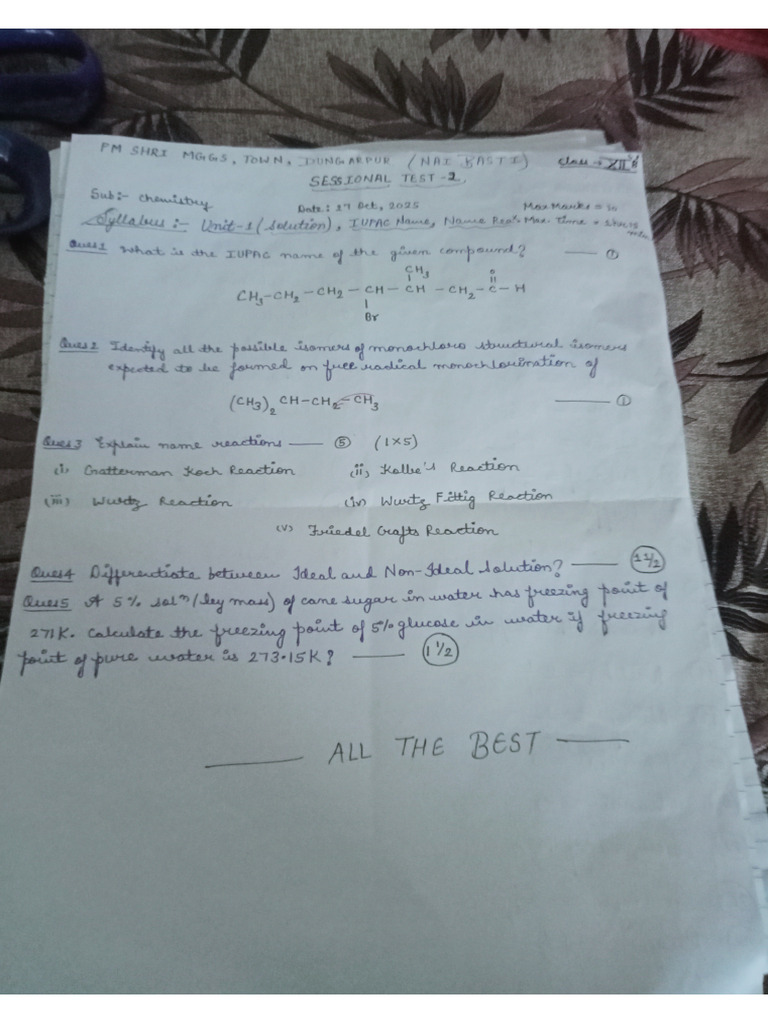 PM SHRI MGGS, TOWN, DUNGARPUR (NAI BASTI) Class → XII
SESSIONAL TEST - 2
Sub:- Chemistry Date: 27 Oct, 2025 Max Marks = 10
Syllabus :- Unit-1 (Solution), IUPAC Name, Name Rea. Max. Time =
Ques1 What is the IUPAC name of the given compound? —— ①
CH₃ O
CH₃-CH₂-CH₂-CH-CH-CH₂-C-H
Br
Ques2 Identify all the possible isomers of monochloro structural isomers
expected to be formed on free radical monochlorination of
(CH₃)₂ CH-CH₂-CH₃ —— ①
Ques3 Explain name reactions —— ⑤ (1×5)
(i) Gatterman Koch Reaction (ii) Kolbe's Reaction
(iii) Wurtz Reaction (iv) Wurtz Fittig Reaction
(v) Friedel Crafts Reaction
Ques4 Differentiate between Ideal and Non-Ideal Solution? —— 1 1/2
Ques5 A 5% solⁿ (by mass) of cane sugar in water has freezing point of
271K. Calculate the freezing point of 5% glucose in water if freezing
point of pure water is 273.15K? —— 1 1/2
—— ALL THE BEST ——